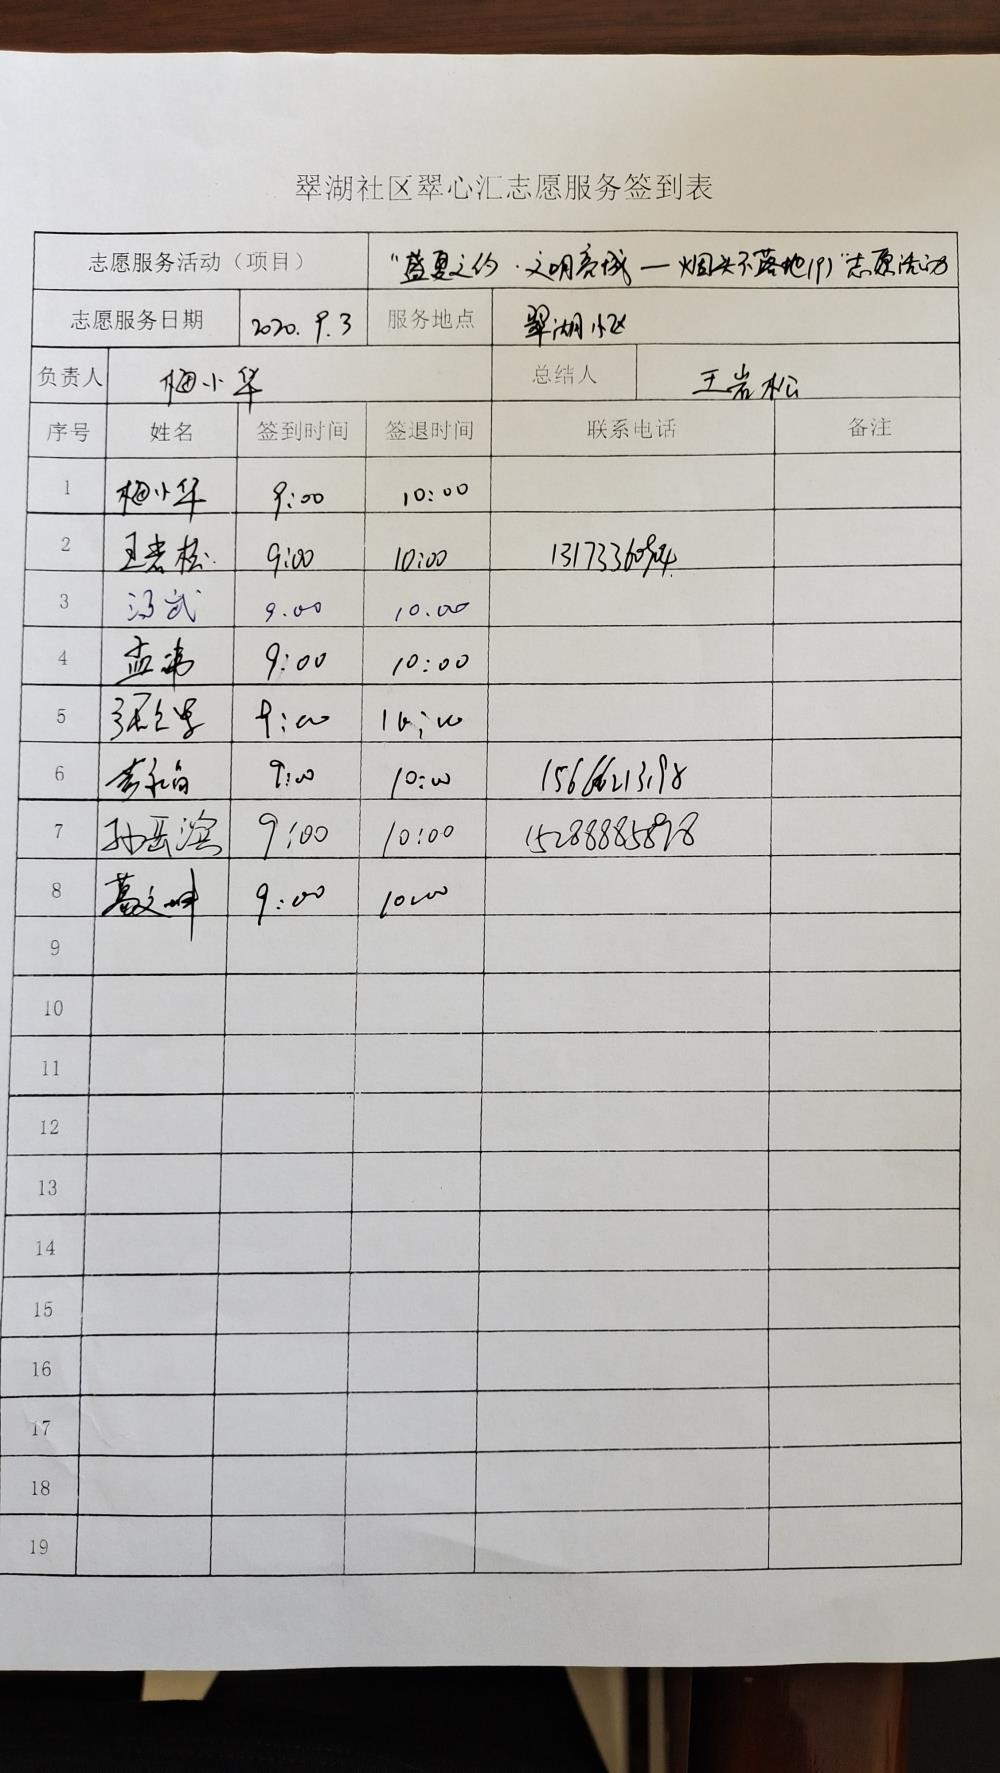 翠湖社区翠心汇志愿服务签到表
志愿服务活动（项目） "盛夏之约·文明亮城—烟头不落地(9)"志愿活动
志愿服务日期 2020. 9. 3 服务地点 翠湖小区
负责人 梅小华 总结人 王岩松
序号 姓名 签到时间 签退时间 联系电话 备注
1 梅小华 9:00 10:00
2 王岩松 9:00 10:00
3 9.00 10.00
4 9:00 10:00
5 9:00 10:00
6 9:00 10:00 15666213198
7 孙岳滨 9:00 10:00 15288885898
8 葛文坤 9:00 10:00
9
10
11
12
13
14
15
16
17
18
19